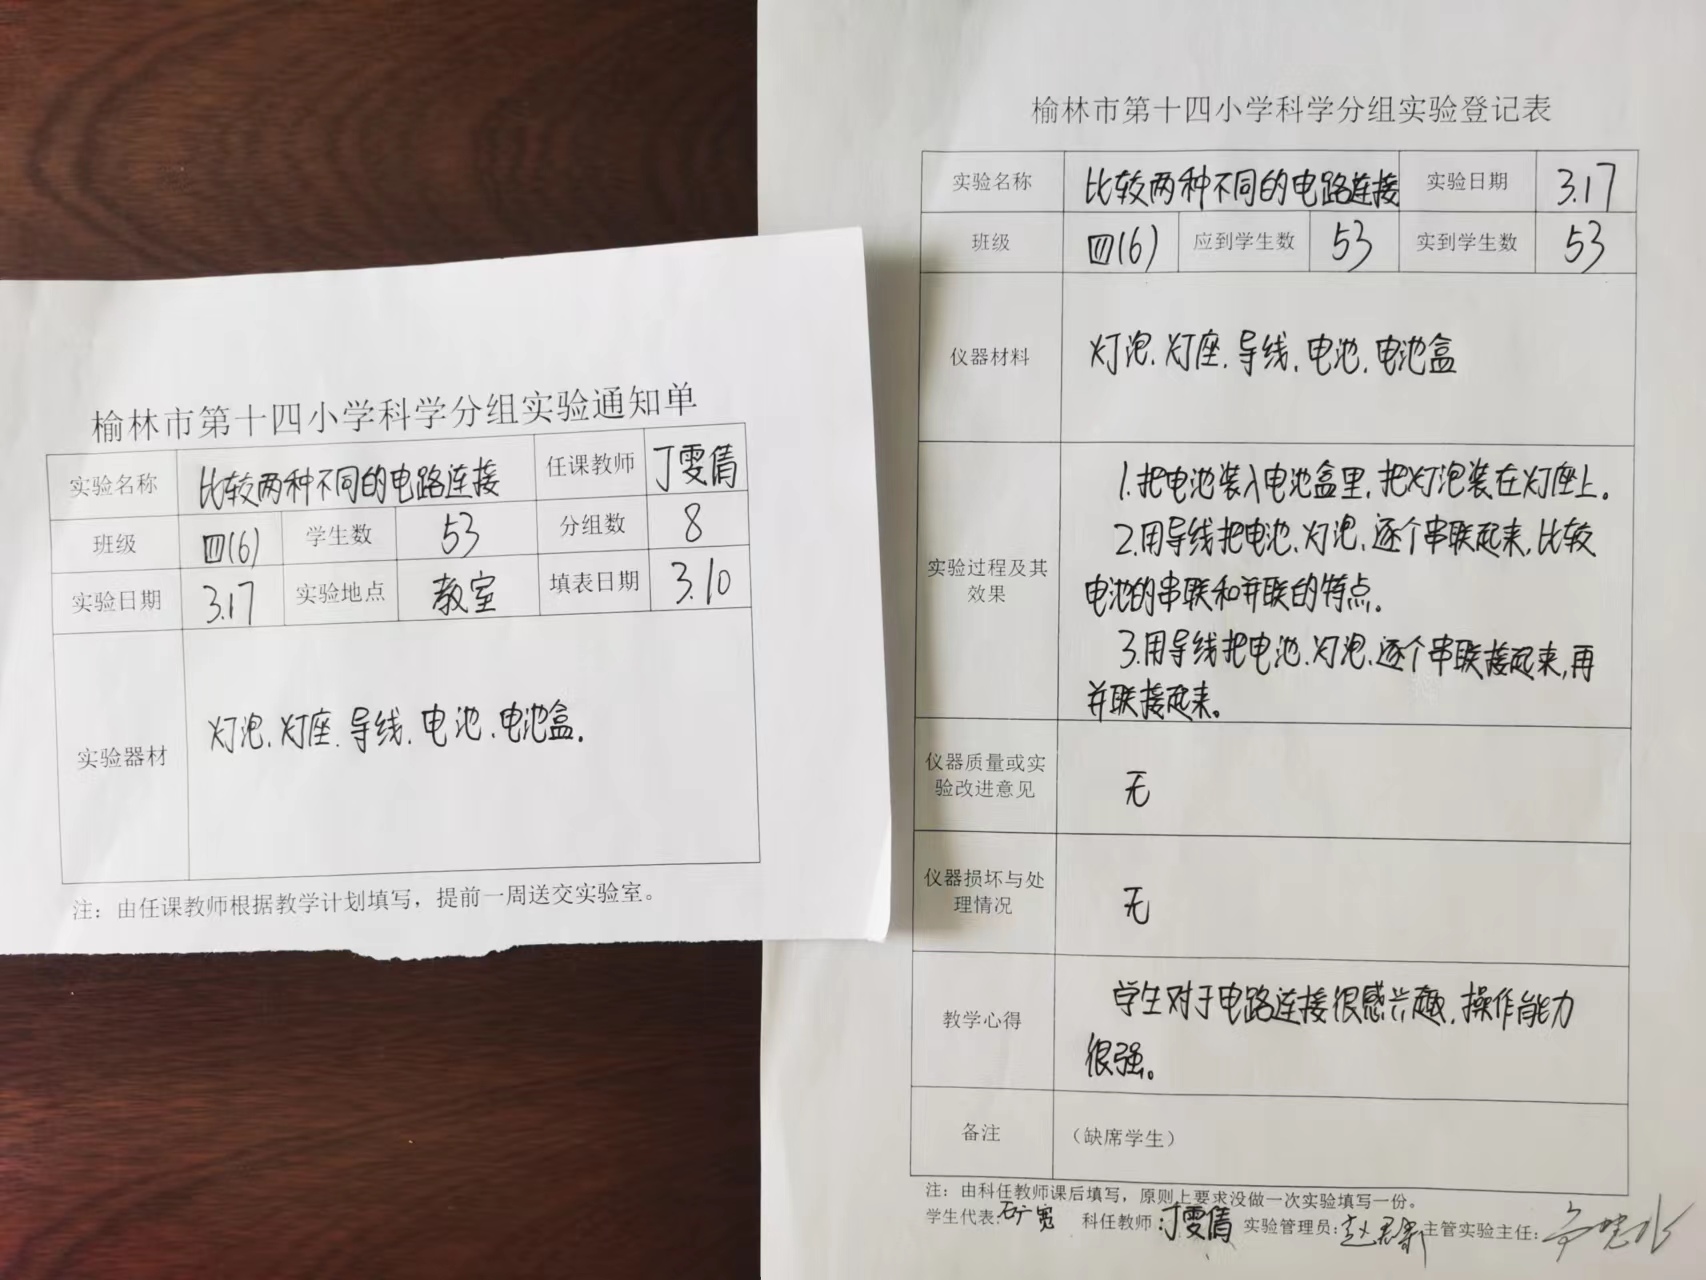 榆林市第十四小学科学分组实验通知单
实验名称 比较两种不同的电路连接 任课教师 丁雯倩
班级 四(6) 学生数 53 分组数 8
实验日期 3.17 实验地点 教室 填表日期 3.10
实验器材 灯泡、灯座、导线、电池、电池盒。
注：由任课教师根据教学计划填写，提前一周送交实验室。
榆林市第十四小学科学分组实验登记表
实验名称 比较两种不同的电路连接 实验日期 3.17
班级 四(6) 应到学生数 53 实到学生数 53
仪器材料 灯泡、灯座、导线、电池、电池盒
实验过程及其
效果
1.把电池装入电池盒里，把灯泡装在灯座上。
2.用导线把电池、灯泡、逐个串联起来，比较
电池的串联和并联的特点。
3.用导线把电池、灯泡、逐个串联接起来，再
并联接起来。
仪器质量或实
验改进意见
无
仪器损坏与处
理情况
无
教学心得
学生对于电路连接很感兴趣，操作能力
很强。
备注 （缺席学生）
注：由科任教师课后填写，原则上要求没做一次实验填写一份。
学生代表: 科任教师:丁雯倩 实验管理员: 主管实验主任: